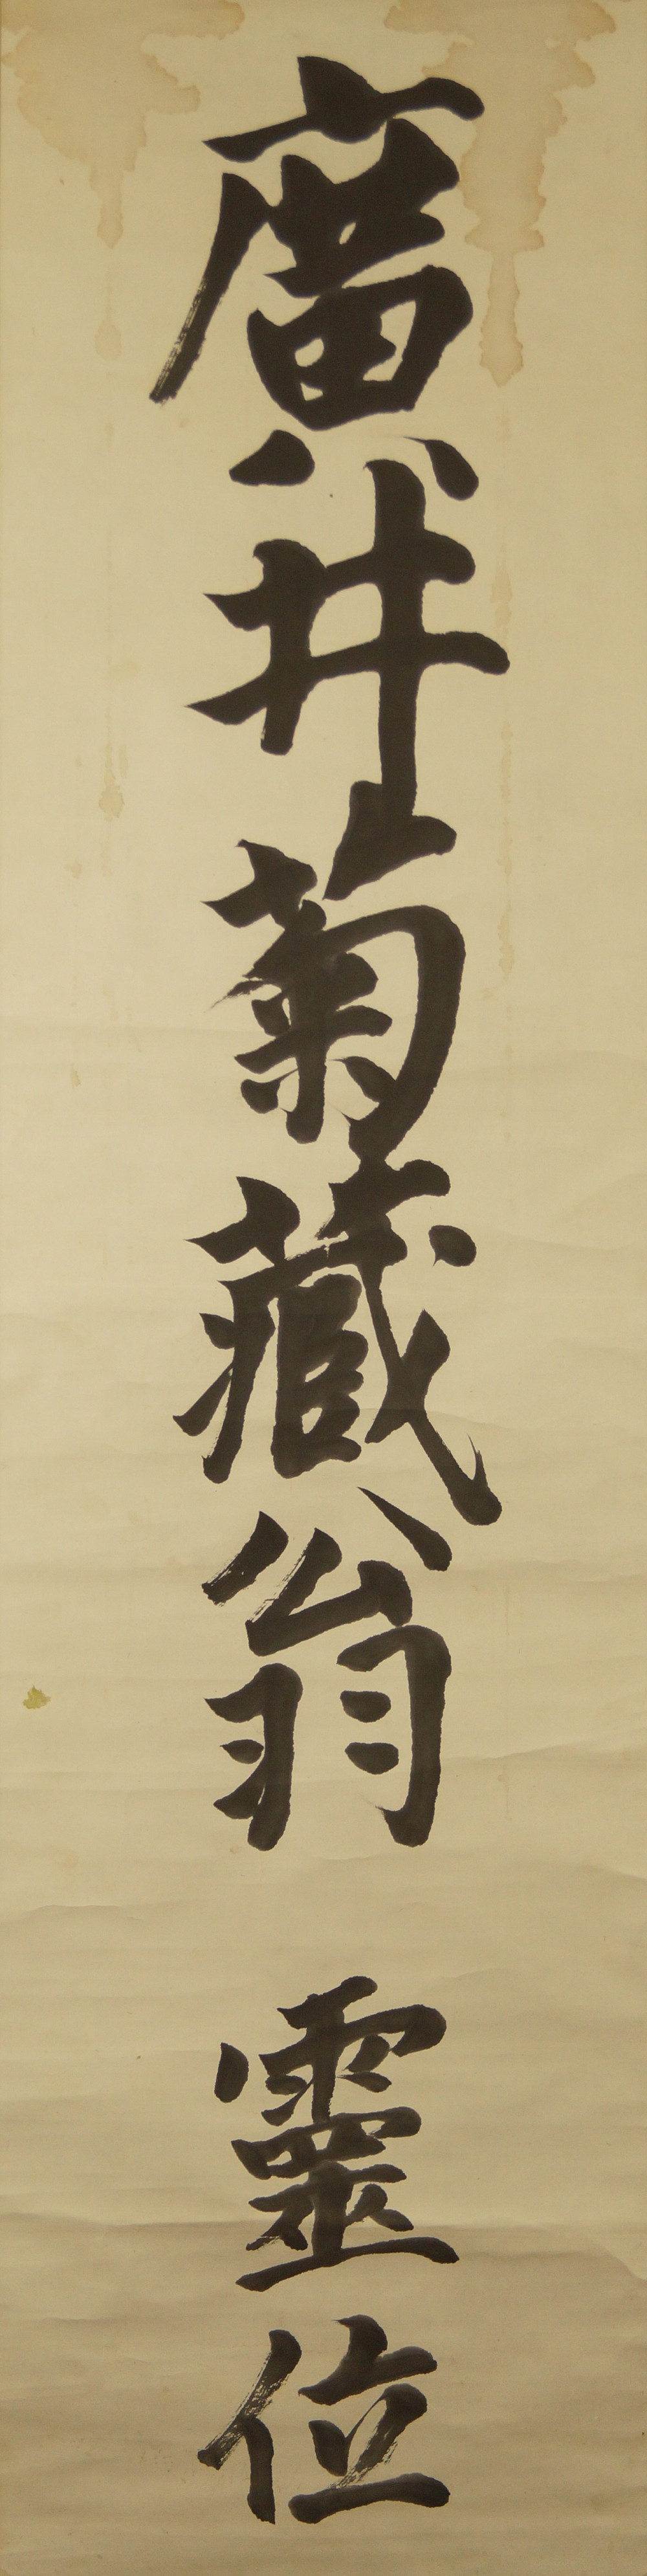 廣井菊藏翁 靈位